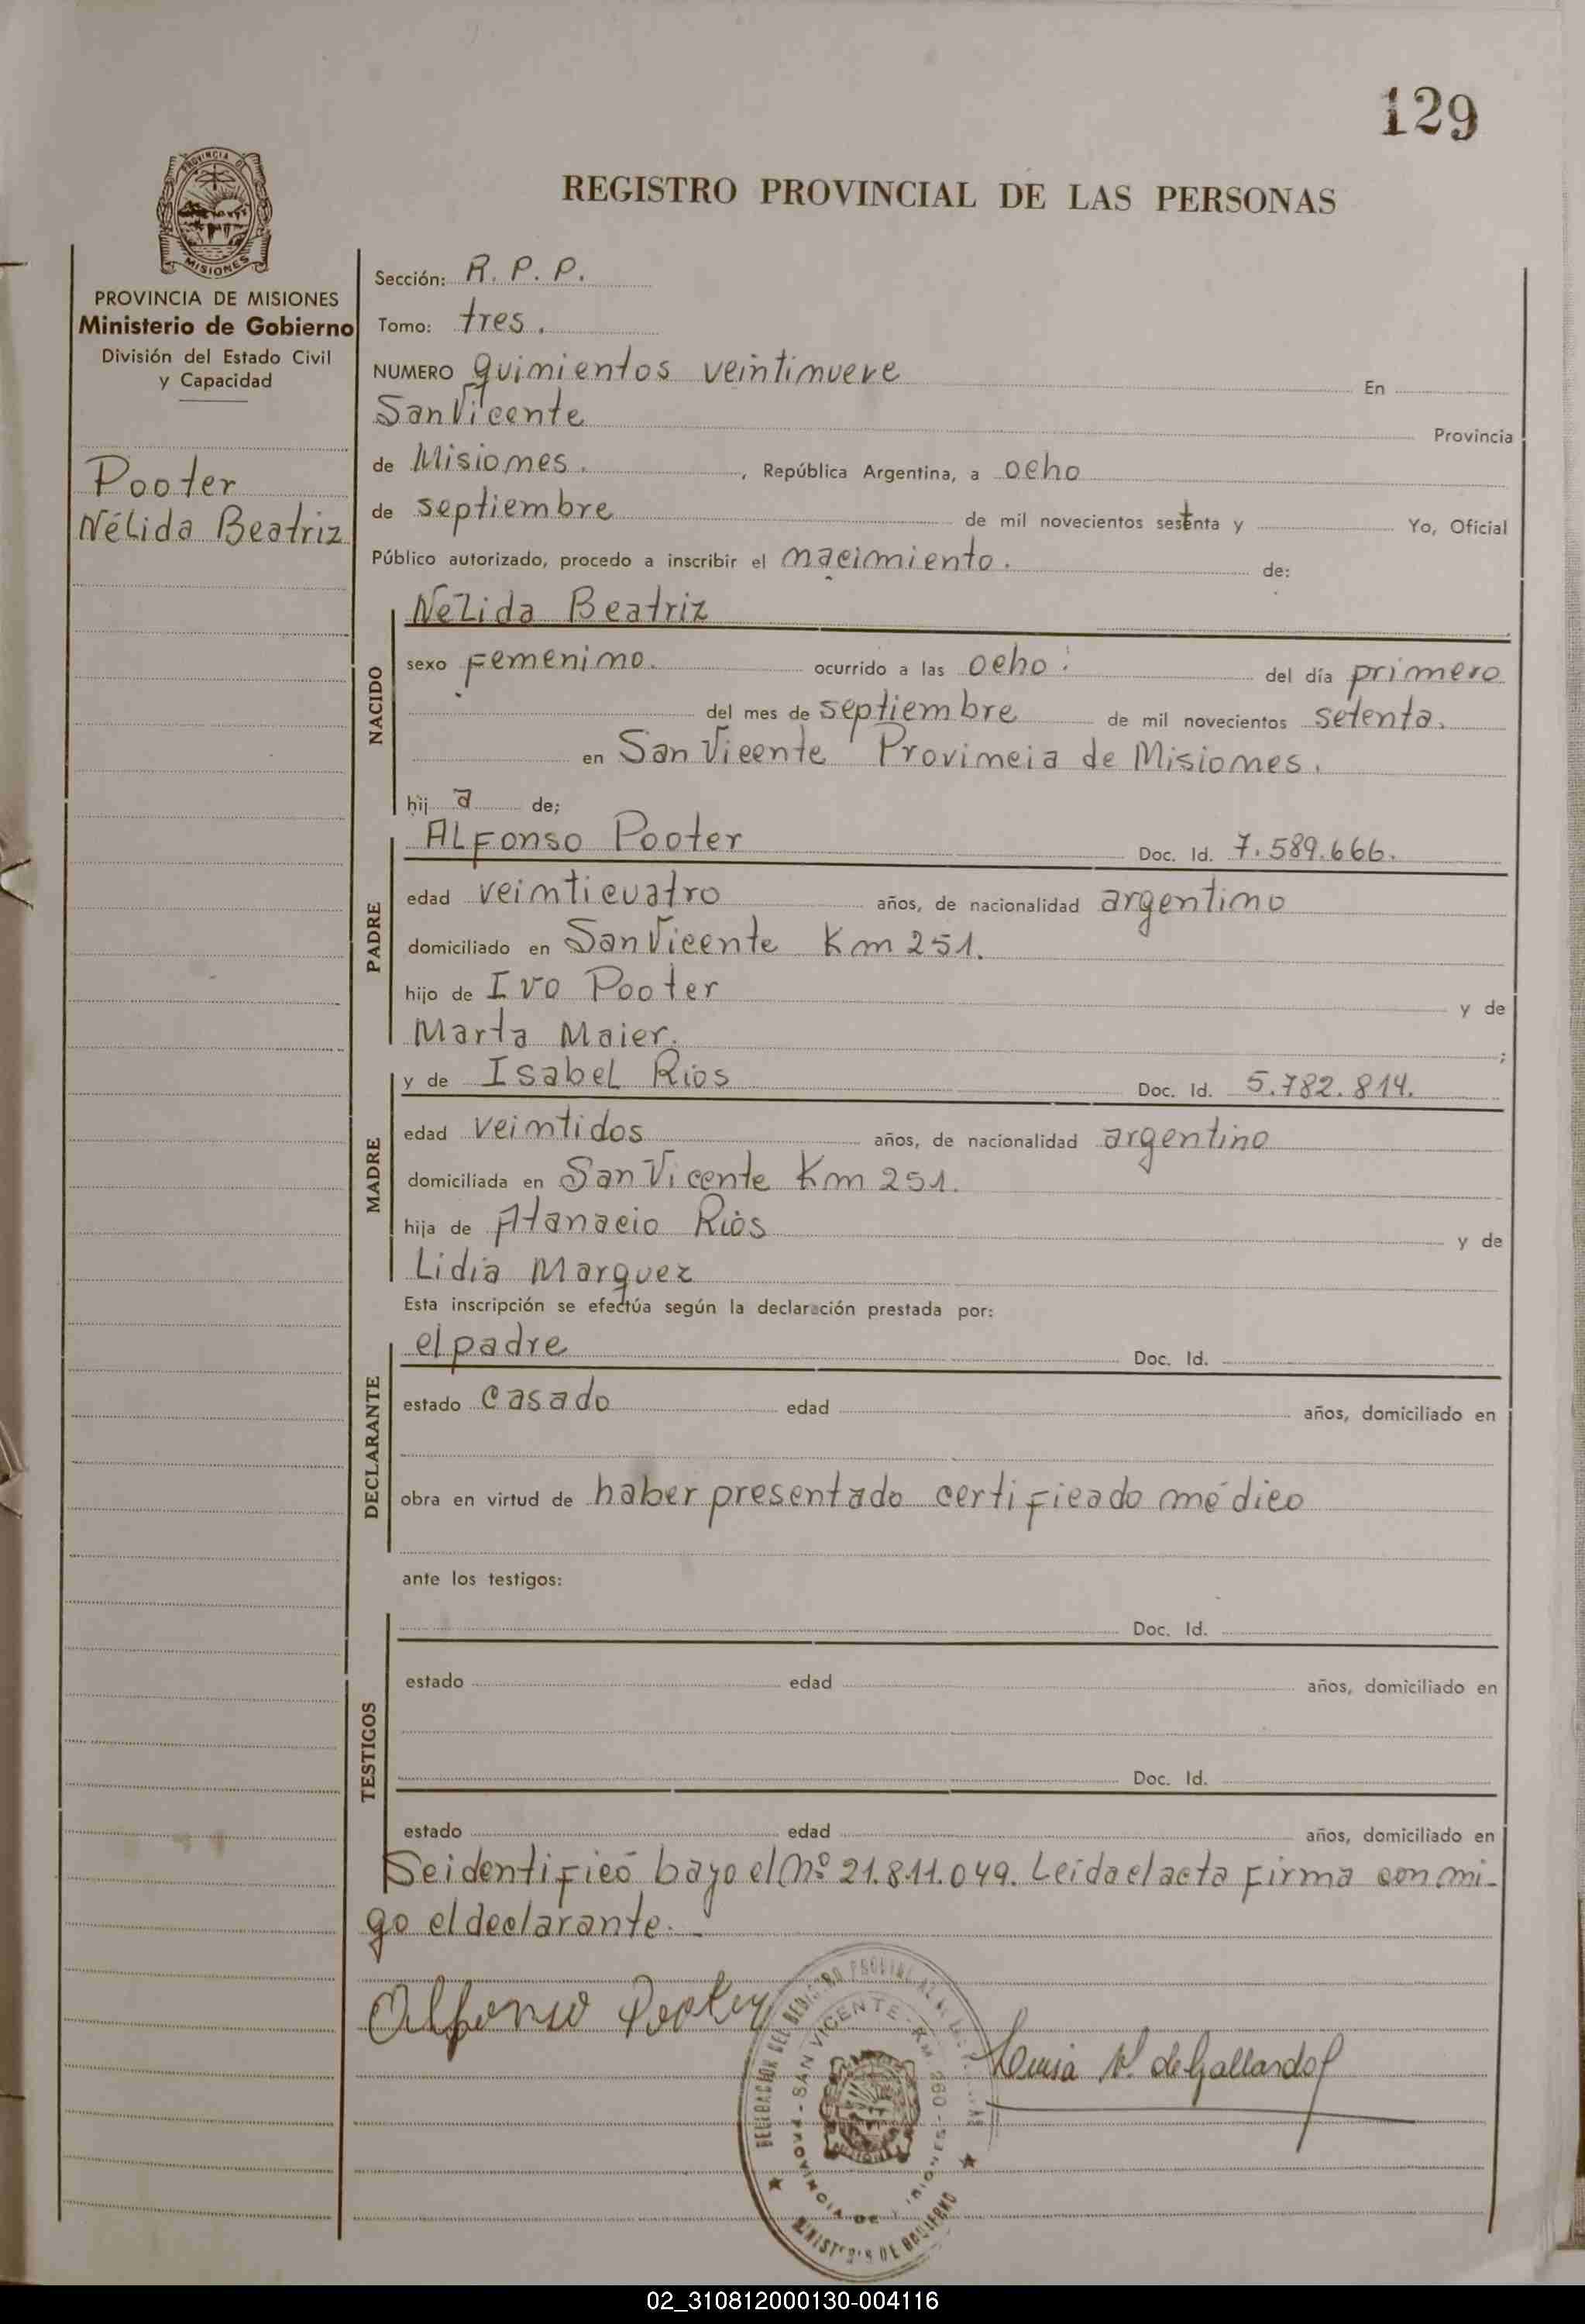 129
REGISTRO PROVINCIAL DE LAS PERSONAS
PROVINCIA DE
MISIONES
PROVINCIA DE MISIONES
Ministerio de Gobierno
División del Estado Civil
y Capacidad
Pooter
Nélida Beatriz
Sección: R. P. P.
Tomo: tres.
NUMERO quimientos veintinueve En
San Vicente Provincia
de Misiones. , República Argentina, a ocho
de septiembre de mil novecientos setenta y Yo, Oficial
Público autorizado, procedo a inscribir el nacimiento. de:
NACIDO
Nelida Beatriz
sexo Femenino. ocurrido a las ocho: del día primero
del mes de septiembre de mil novecientos setenta.
en San Vicente Provincia de Misiones.
hij a de;
PADRE
Alfonso Pooter Doc. Id. 7.589.666.
edad veinticuatro años, de nacionalidad argentino
domiciliado en San Vicente Km 251.
hijo de Ivo Pooter y de
Marta Maier. ;
MADRE
y de Isabel Rios Doc. Id. 5.782.814.
edad veintidos años, de nacionalidad argentino
domiciliada en San Vicente Km 251.
hija de Atanacio Riós y de
Lidia Marquez
Esta inscripción se efectúa según la declaración prestada por:
DECLARANTE
el padre Doc. Id.
estado casado edad años, domiciliado en
obra en virtud de haber presentado certificado médico
ante los testigos:
TESTIGOS
Doc. Id.
estado edad años, domiciliado en
Doc. Id.
estado edad años, domiciliado en
Se identificó bajo el nº 21.811.049. Leida el acta firma conmi-
go el declarante.
Alfonso Pooter
DELEGACION DEL REGISTRO PROVINCIAL
SAN VICENTE - Km. 260
PROVINCIA DE MISIONES
MINISTERIO DE GOBIERNO
Luisa V. de Gallardo
02_310812000130-004116